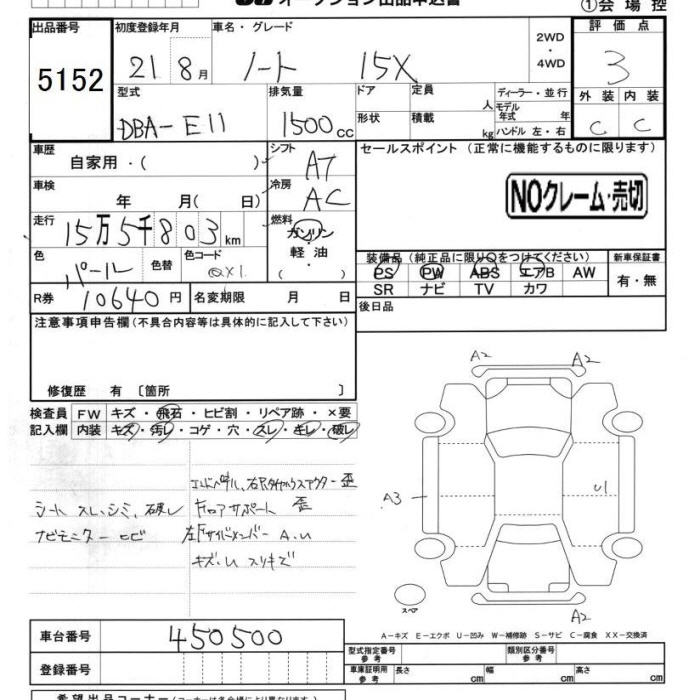 オークション出品申込書
①会場控
出品番号 初度登録年月 車名・グレード 評価点
5152 21 8月 ノート 15X 2WD・4WD 3
型式 排気量 ドア 定員 人 ディーラー・並行 外装 内装
DBA-E11 1500cc 形状 積載 kg モデル年式 年 ハンドル 左・右 C C
車歴 自家用・( ) シフト AT セールスポイント (正常に機能するものに限ります)
車検 年 月( 日) 冷房 AC NOクレーム・売切
走行 15万5千803km 燃料 ガソリン・軽油
色 パール 色替 色コード QX1 装備品 (純正品に限り○をつけてください) 新車保証書
PS PW ABS エアB AW 有・無
SR ナビ TV カワ
R券 10640円 名変期限 月 日 後日品
注意事項申告欄 (不具合内容等は具体的に記入して下さい)
修復歴 有 〔箇所 〕
検査員 FW キズ・飛石・ヒビ割・リペア跡・×要
記入欄 内装 キズ・汚レ・コゲ・穴・スレ・キレ・破レ
歪
シート スレ、シミ、破レ フロアサポート 歪
ナビモニター ヒビ 左F サイドメンバー A.U
キズ・U スリキズ
A2 A2
A3 U1
スペア
A2
A-キズ E-エクボ U-凹み W-補修跡 S-サビ C-腐食 XX-交換済
車台番号 450500 型式指定番号 参考 類別区分番号 参考
登録番号 車庫証明用 参考 長さ cm 幅 cm 高さ cm
希望出品コーナー (コーナーは各会場により異なります)